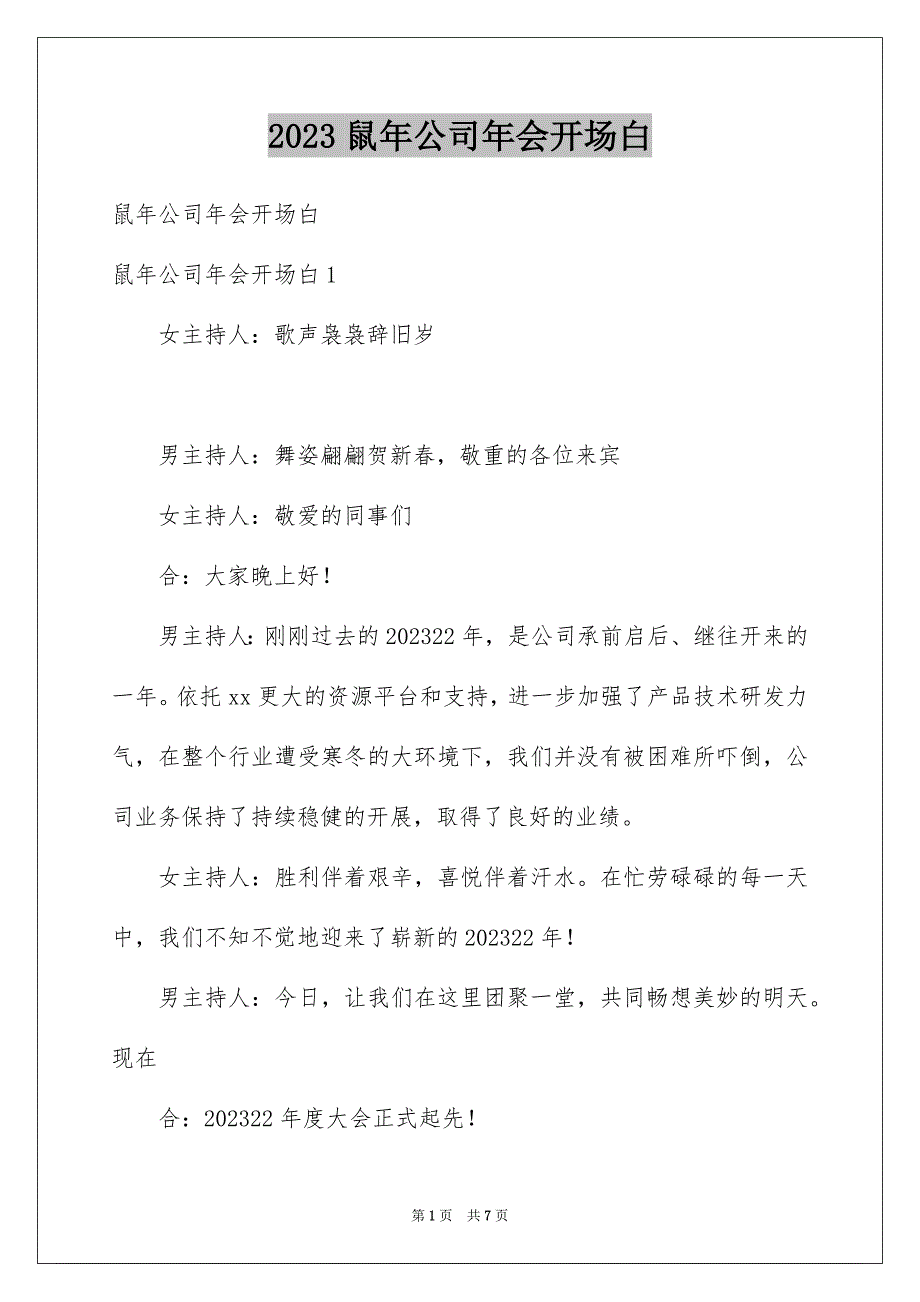 2023鼠年公司年会开场白
鼠年公司年会开场白
鼠年公司年会开场白1
女主持人：歌声袅袅辞旧岁
男主持人：舞姿翩翩贺新春，敬重的各位来宾
女主持人：敬爱的同事们
合：大家晚上好！
男主持人：刚刚过去的202322年，是公司承前启后、继往开来的
一年。依托xx更大的资源平台和支持，进一步加强了产品技术研发力
气，在整个行业遭受寒冬的大环境下，我们并没有被困难所吓倒，公
司业务保持了持续稳健的开展，取得了良好的业绩。
女主持人：胜利伴着艰辛，喜悦伴着汗水。在忙劳碌碌的每一天
中，我们不知不觉地迎来了崭新的202322年！
男主持人：今日，让我们在这里团聚一堂，共同畅想美妙的明天。
现在
合：202322年度大会正式起先！
第1页 共7页